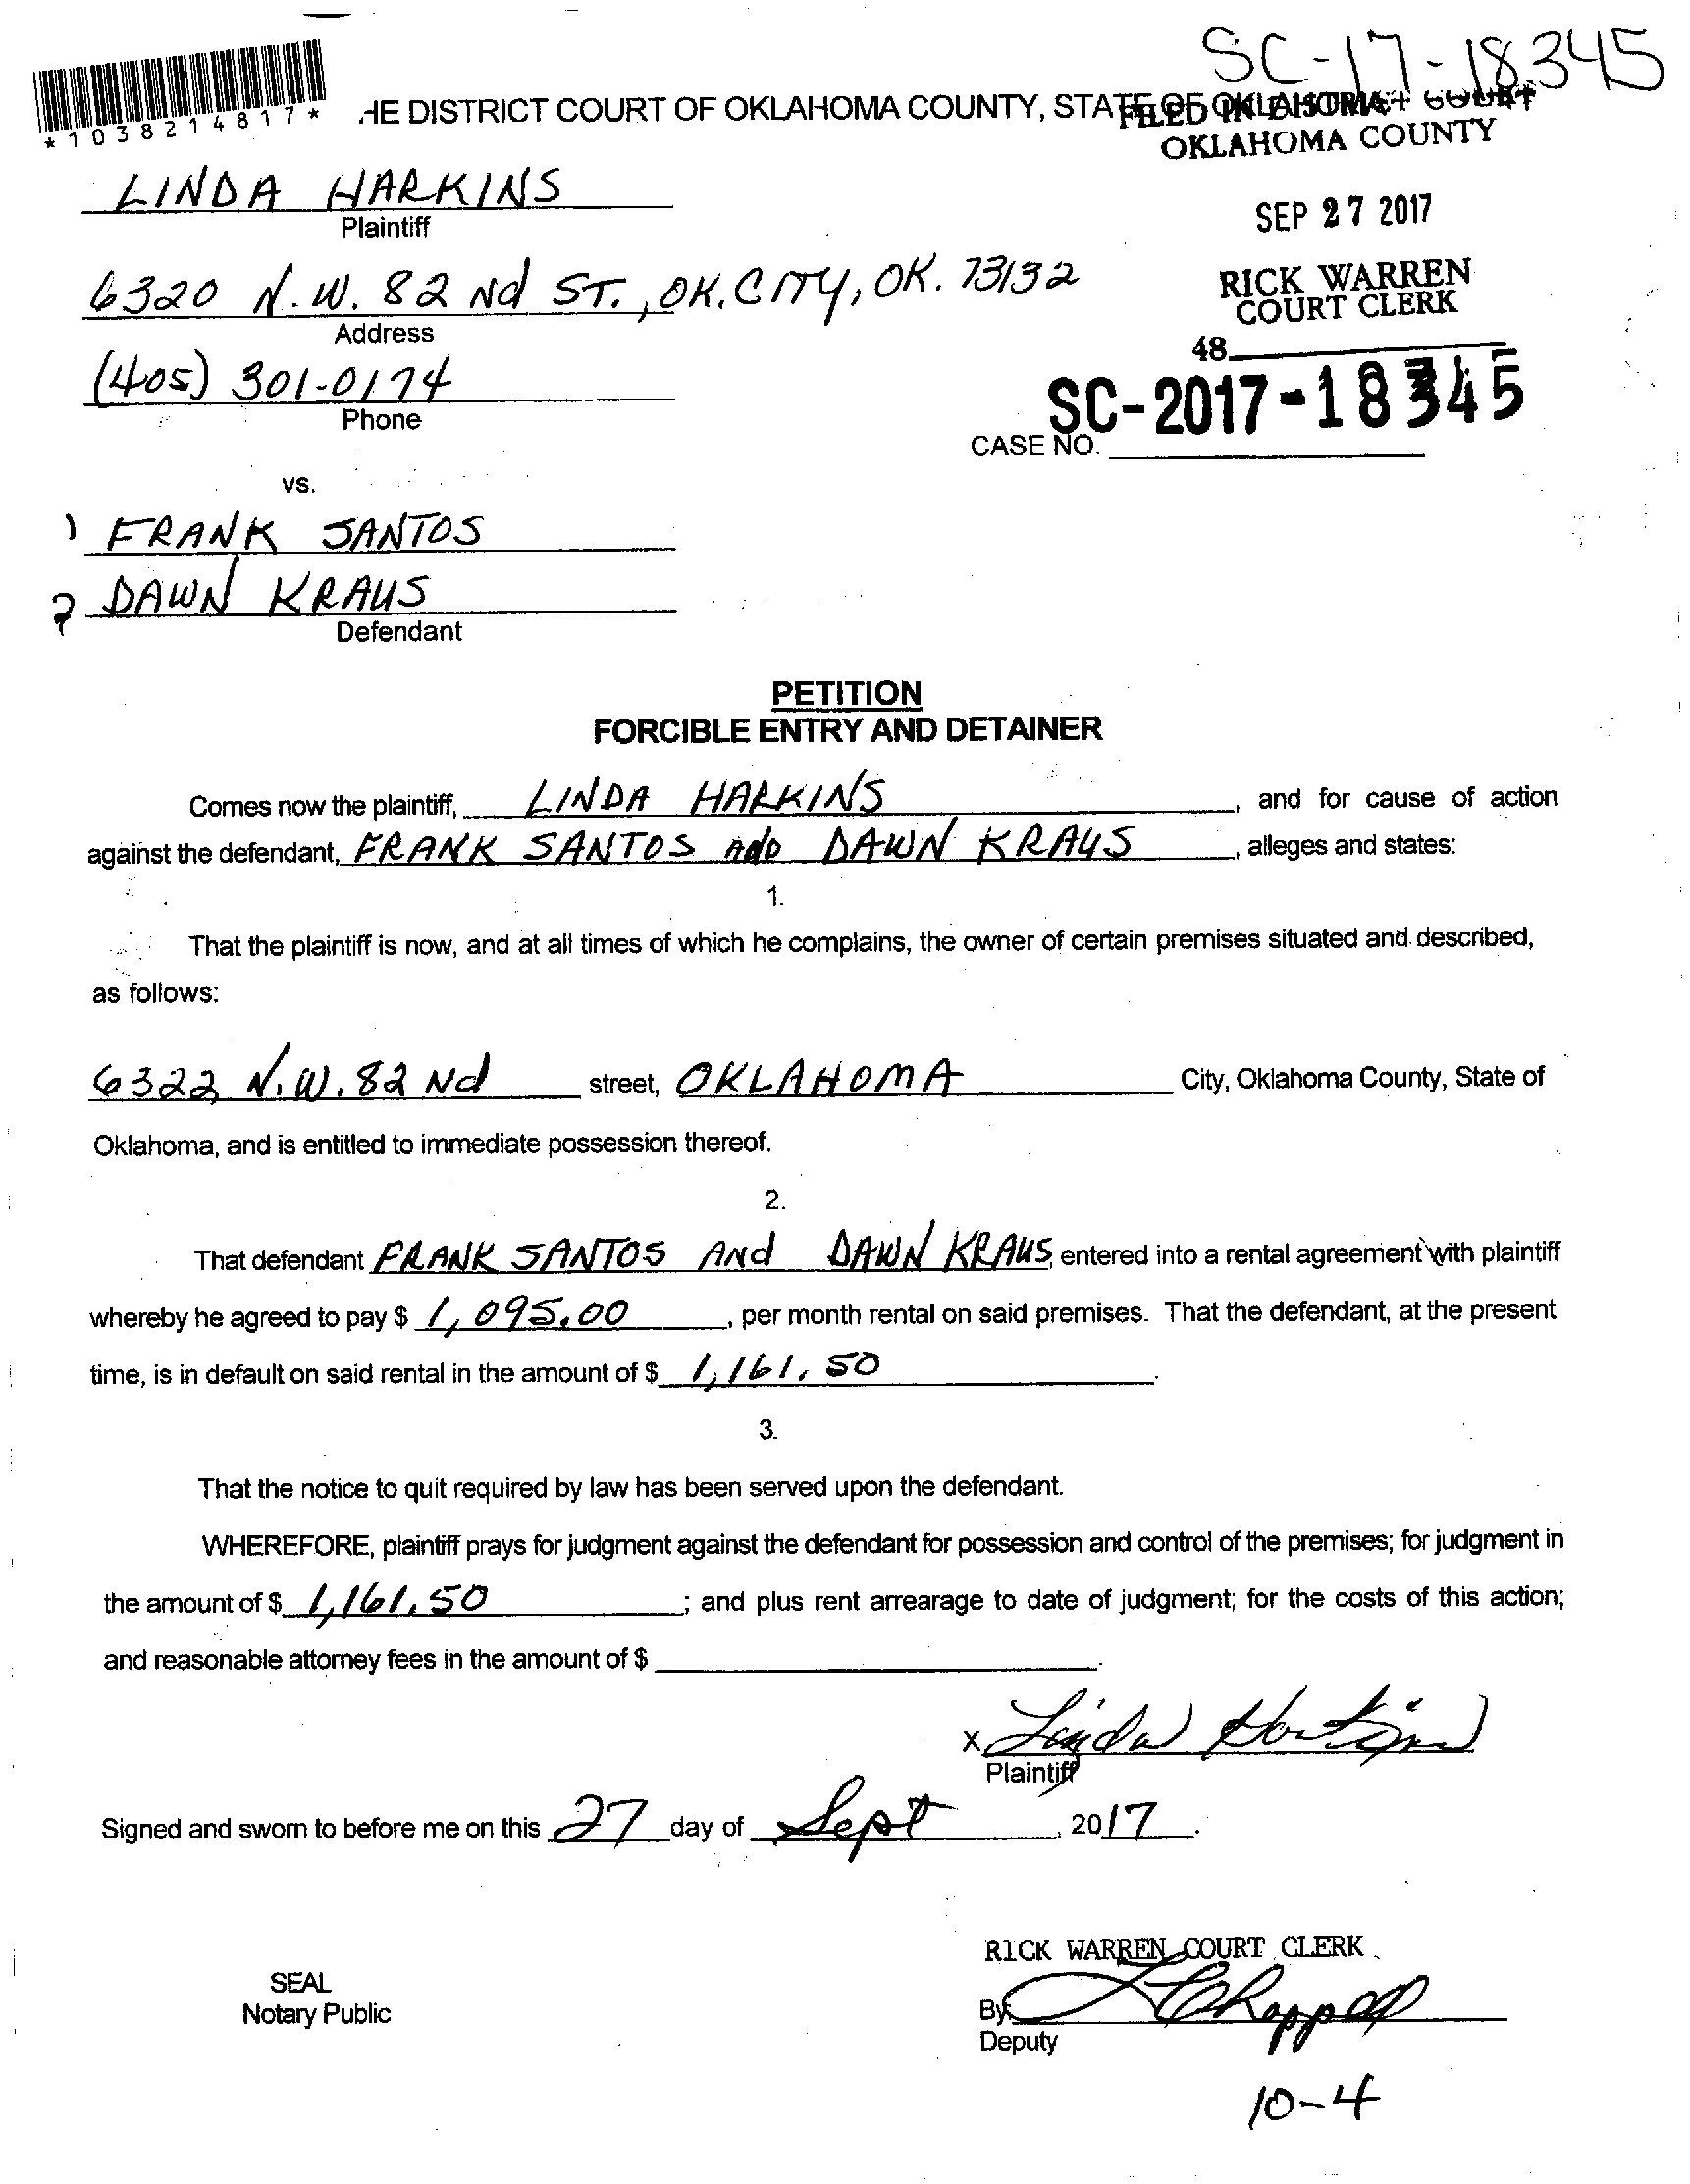 SC-17-18345
*1038214817*
HE DISTRICT COURT OF OKLAHOMA COUNTY, STATE OF OKLAHOMA
FILED IN DISTRICT COURT
OKLAHOMA COUNTY
LINDA HARKINS
Plaintiff
SEP 27 2017
6320 N.W. 82 Nd ST., OK. CITY, OK. 73132
Address
RICK WARREN
COURT CLERK
(405) 301-0174
Phone
48
SC-2017-18345
CASE NO.
vs.
1 FRANK SANTOS
2 DAWN KRAUS
Defendant
PETITION
FORCIBLE ENTRY AND DETAINER
Comes now the plaintiff, LINDA HARKINS, and for cause of action
against the defendant, FRANK SANTOS AND DAWN KRAUS, alleges and states:
1.
That the plaintiff is now, and at all times of which he complains, the owner of certain premises situated and described,
as follows:
6322 N.W. 82 Nd street, OKLAHOMA City, Oklahoma County, State of
Oklahoma, and is entitled to immediate possession thereof.
2.
That defendant FRANK SANTOS And DAWN KRAUS, entered into a rental agreement with plaintiff
whereby he agreed to pay $ 1,095.00, per month rental on said premises. That the defendant, at the present
time, is in default on said rental in the amount of $ 1,161.50.
3.
That the notice to quit required by law has been served upon the defendant.
WHEREFORE, plaintiff prays for judgment against the defendant for possession and control of the premises; for judgment in
the amount of $ 1,161.50; and plus rent arrearage to date of judgment; for the costs of this action;
and reasonable attorney fees in the amount of $ .
x Linda Harkins
Plaintiff
Signed and sworn to before me on this 27 day of Sept, 2017.
RICK WARREN COURT CLERK
SEAL
Notary Public
By
Deputy
10-4